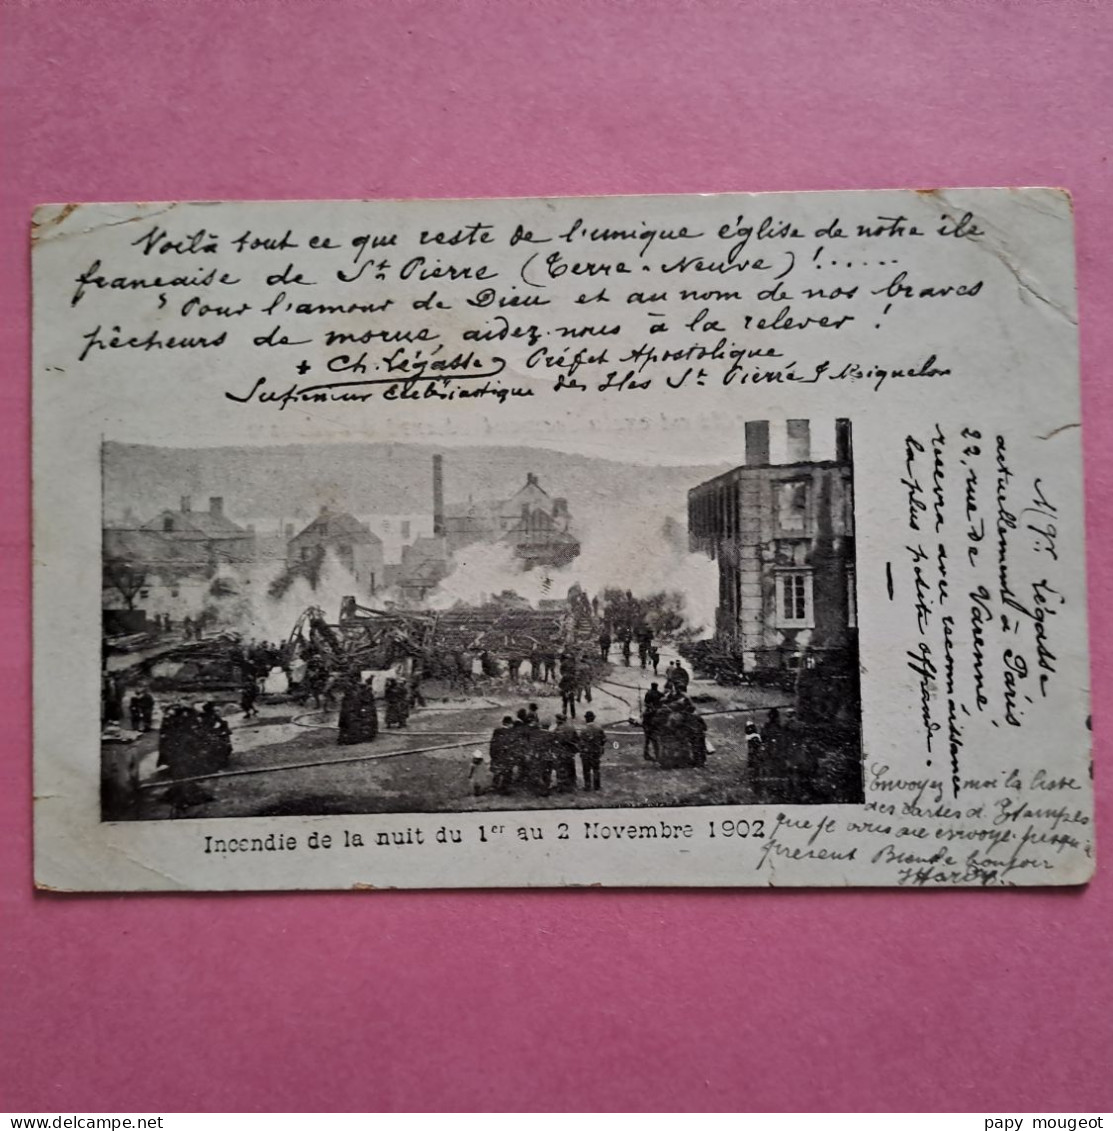 Voilà tout ce que reste de l'unique église de notre île
française de St. Pierre (Terre-Neuve)!......
Pour l'amour de Dieu et au nom de nos braves
pêcheurs de morue, aidez-nous à la relever!
+ Ch. Légasse, Préfet Apostolique
Supérieur Ecclésiastique des Iles St Pierre & Miquelon
Mgr. Légasse
actuellement à Paris
22, rue de Varenne,
recevra avec reconnaissance
la plus petite offrande.
Incendie de la nuit du 1er au 2 Novembre 1902
Envoyez moi la liste
des cartes d. Etampes
que je vous ai envoyé jusqu'a
présent bonjour
papy mougeot